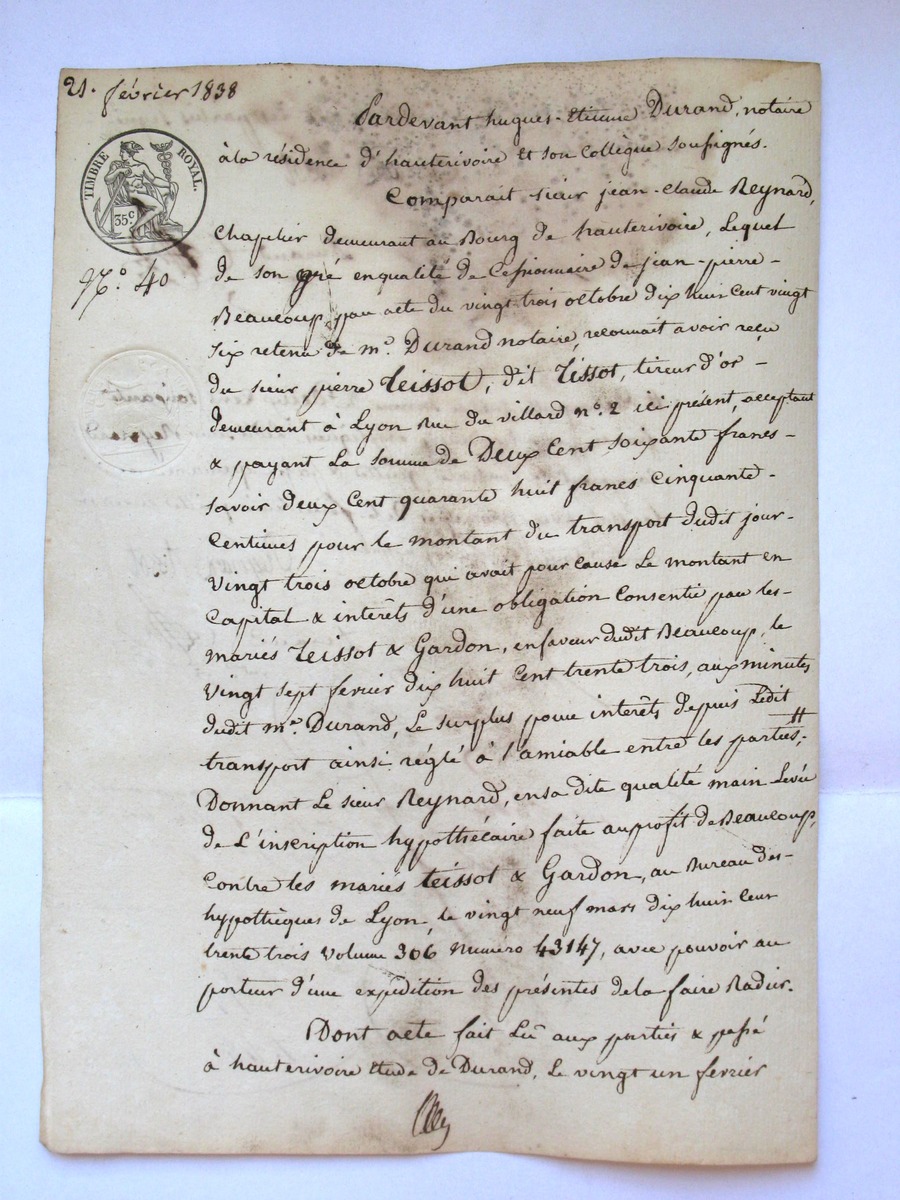 21. février 1838
Pardevant hugues-Etienne Durand, notaire
à la résidence d'hauterivoire et son Collègue soussignés.
TIMBRE ROYAL.
35.c
Comparait sieur jean-Claude Reynard,
Chapelier demeurant au Bourg de hauterivoire, Lequel
N.o 40
de son gré enqualité de Cessionnaire de jean-pierre-
Beaucoup, par acte du vingt-trois octobre dix huit cent vingt
six retenu de m.e Durand notaire, reconnait avoir reçu
du sieur pierre Teissot, dit Tissot, tireur d'or-
demeurant à Lyon Rue du villard n.o 2 ici présent, acceptant
& payant La somme de Deux Cent soixante francs-
savoir deux Cent quarante huit francs Cinquante-
Centimes pour le montant du transport dudit jour-
vingt trois octobre qui avait pour cause Le montant en
Capital & interêts d'une obligation Consentie par les-
mariés Teissot & Gardon, enfaveur dudit Beaucoup, le
vingt sept fevrier dix huit Cent trente trois, aux minutes
dudit m.e Durand, Le surplus pour interêts depuis Ledit
transport ainsi réglé à l'amiable entre les parties,
Donnant Le sieur Reynard, ensa dite qualité main Levée
de L'inscription hypothécaire faite auprofit de Beaucoup,
Contre les mariés Teissot & Gardon, au Bureau des-
hypothèques de Lyon, le vingt neuf mars dix huit Cent
trente trois volume 306 Numéro 43147, avec pouvoir au
porteur d'une expédition des présentes dela faire Radier.
Dont acte fait Lu aux parties & passé
à hauterivoire Etude de Durand, Le vingt un fevrier